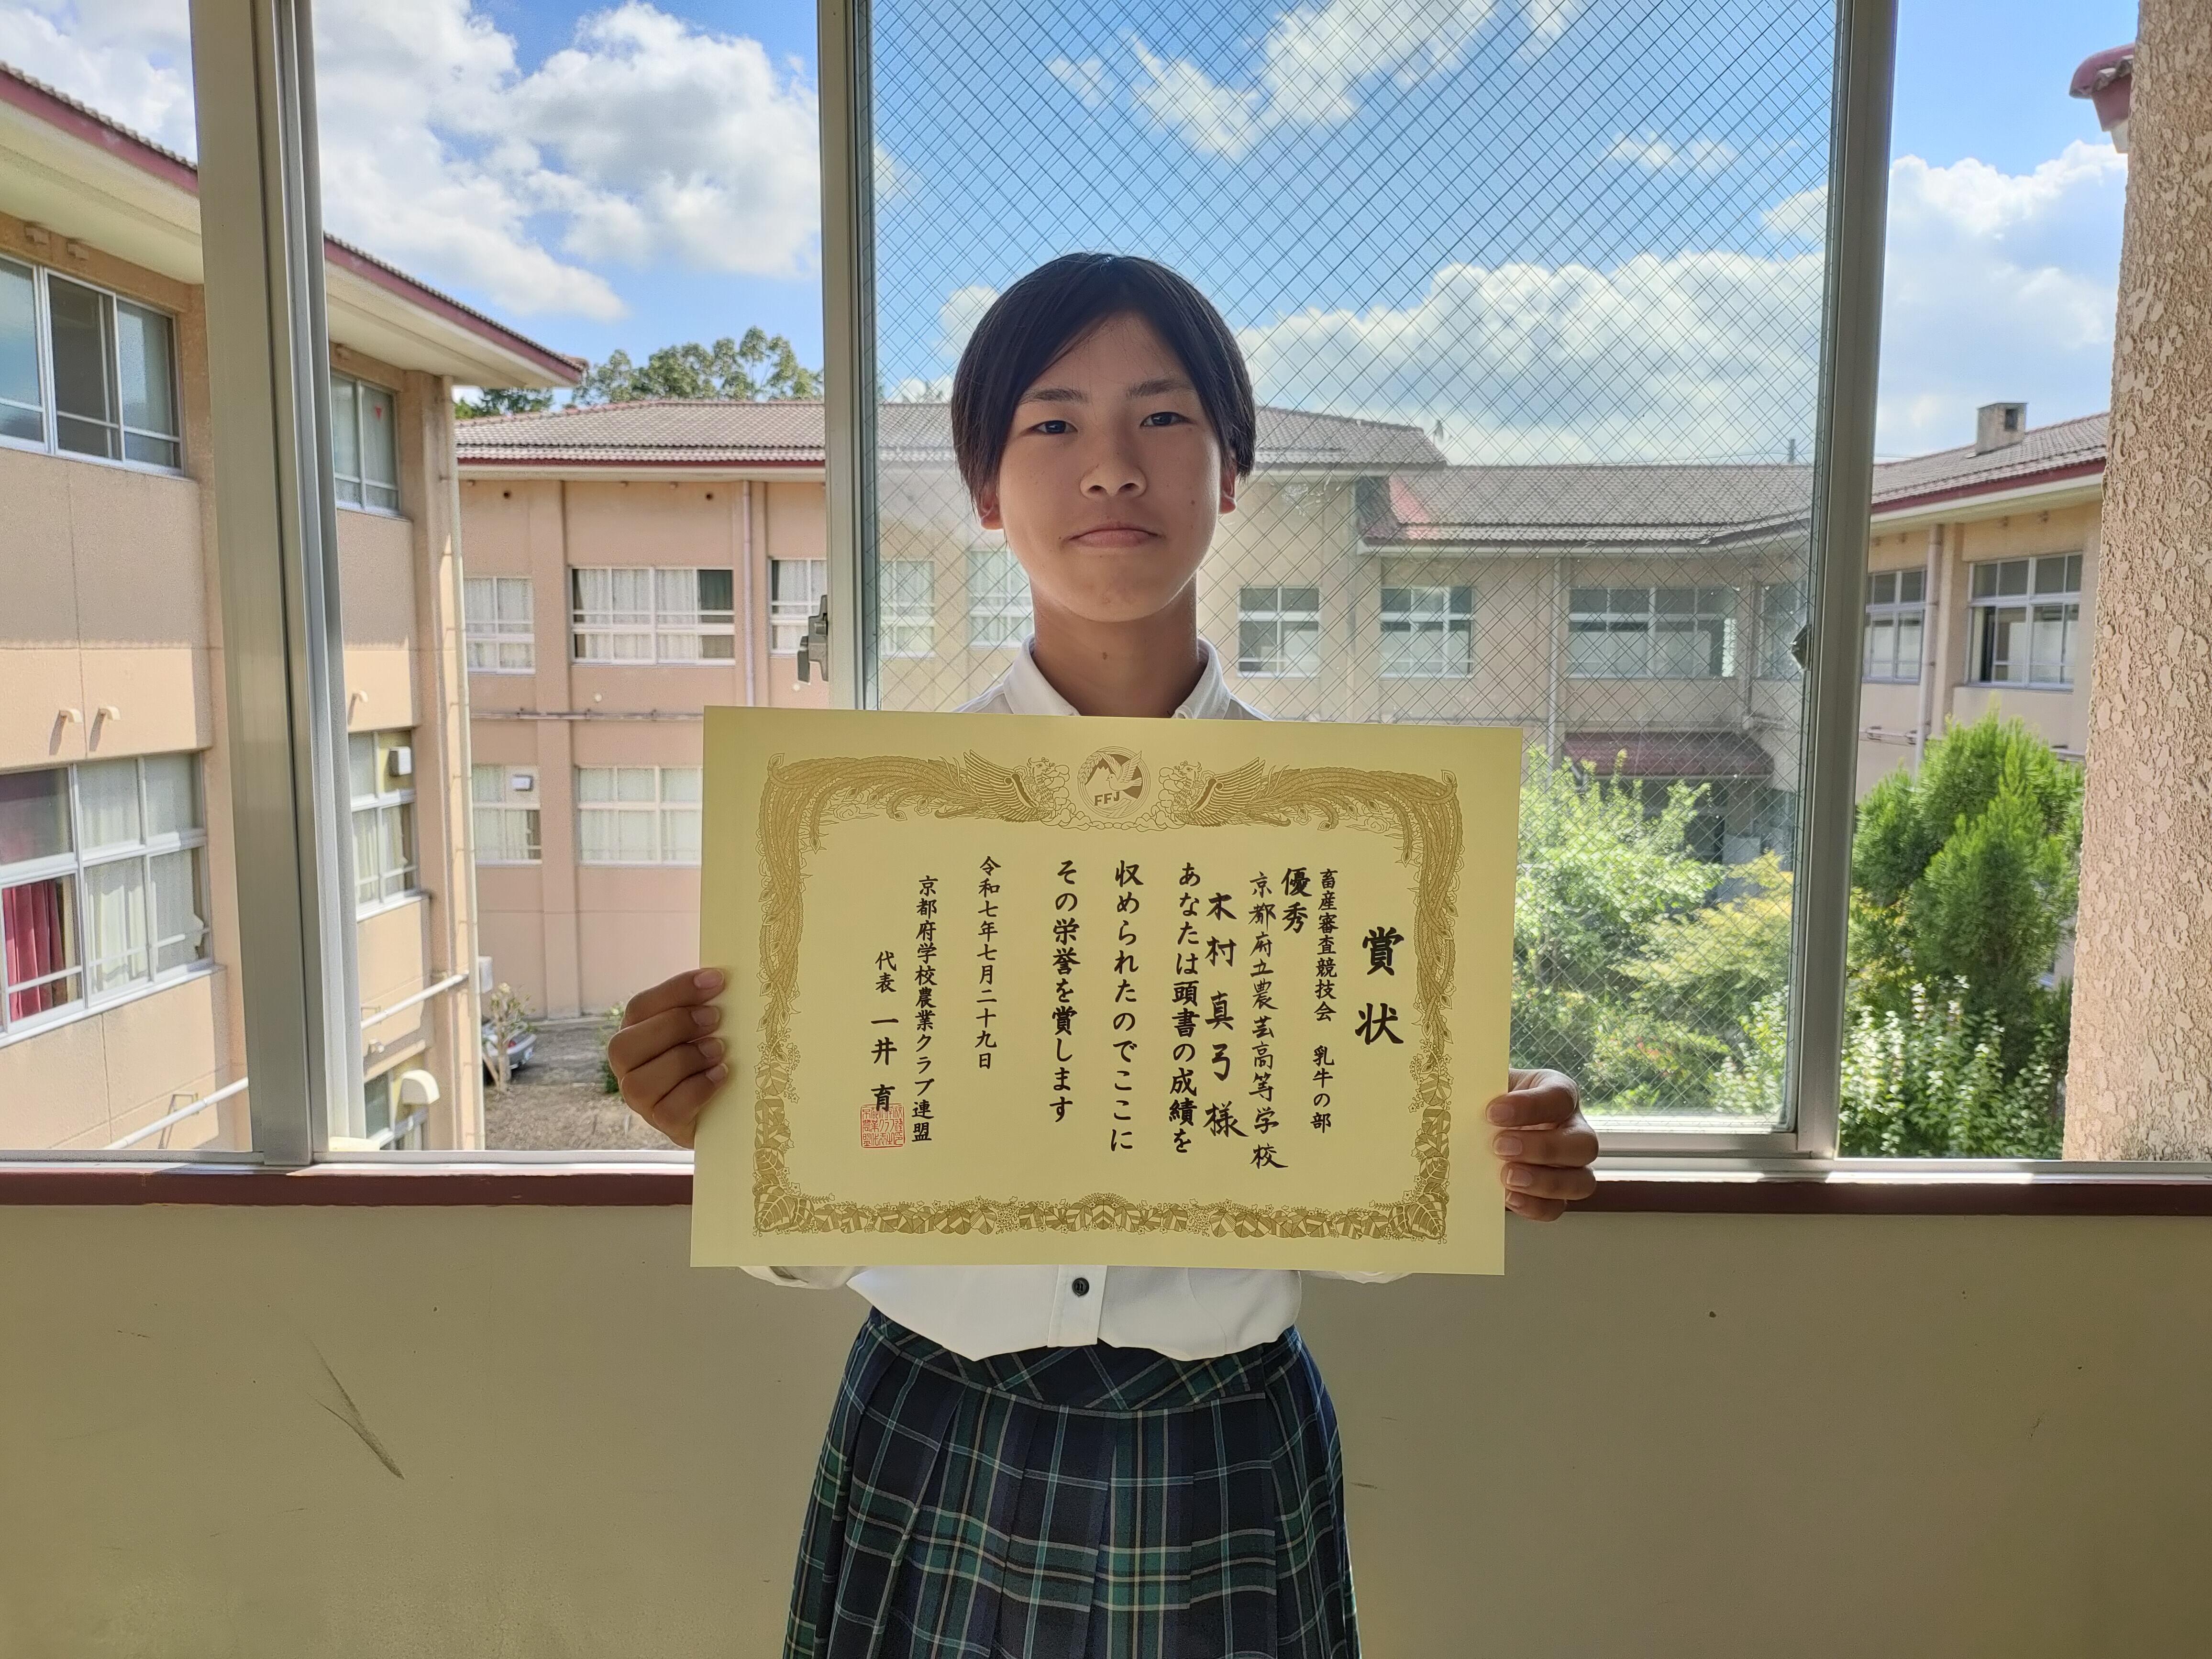 FFJ
賞状
畜産審査競技会　乳牛の部
優秀
京都府立農芸高等学校
木村　真弓　様
あなたは頭書の成績を
収められたのでここに
その栄誉を賞します
令和七年七月二十九日
京都府学校農業クラブ連盟
代表　一井　育